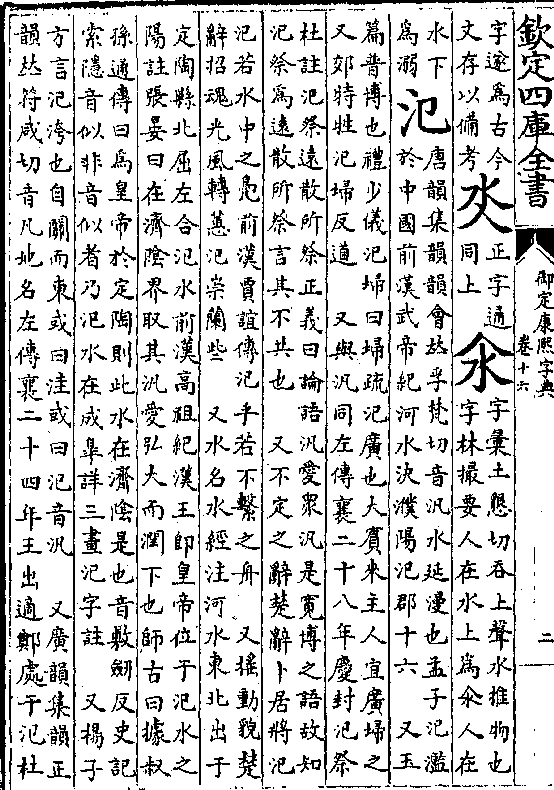 欽定四庫全書
御定康熙字典
卷十六
二
字遂為古今
文存以備考
㳄正字通
同上
氽字彙土懇切吞上聲水推物也
字林撮要人在水上為氽人在
水下
為溺
氾唐韻集韻韻會𠀤孚梵切音汎水延漫也孟子氾濫
於中國前漢武帝紀河水決濮陽氾郡十六　又玉
篇普博也禮少儀氾埽曰埽疏氾廣也大賓來主人宜廣埽之
又郊特牲氾埽反道　又與汎同左傳襄二十八年慶封氾祭
杜註氾祭遠散所祭正義曰論語汎愛眾汎是寬博之語故知
氾祭為遠散所祭言其不共也　又不定之辭楚辭卜居將氾
氾若水中之鳧前漢賈誼傳氾乎若不繫之舟　又搖動貌楚
辭招魂光風轉蕙氾崇蘭些　又水名水經注河水東北出于
定陶縣北屈左合氾水前漢高祖紀漢王即皇帝位于氾水之
陽註張晏曰在濟陰界取其汎愛弘大而潤下也師古曰據叔
孫通傳曰為皇帝於定陶則此水在濟陰是也音敷劒反史記
索隱音似非音似者乃汜水在成臯詳三畫汜字註　又揚子
方言氾洿也自關而東或曰洼或曰氾音汎　又廣韻集韻正
韻𠀤符咸切音凡地名左傳襄二十四年王出適鄭處于氾杜